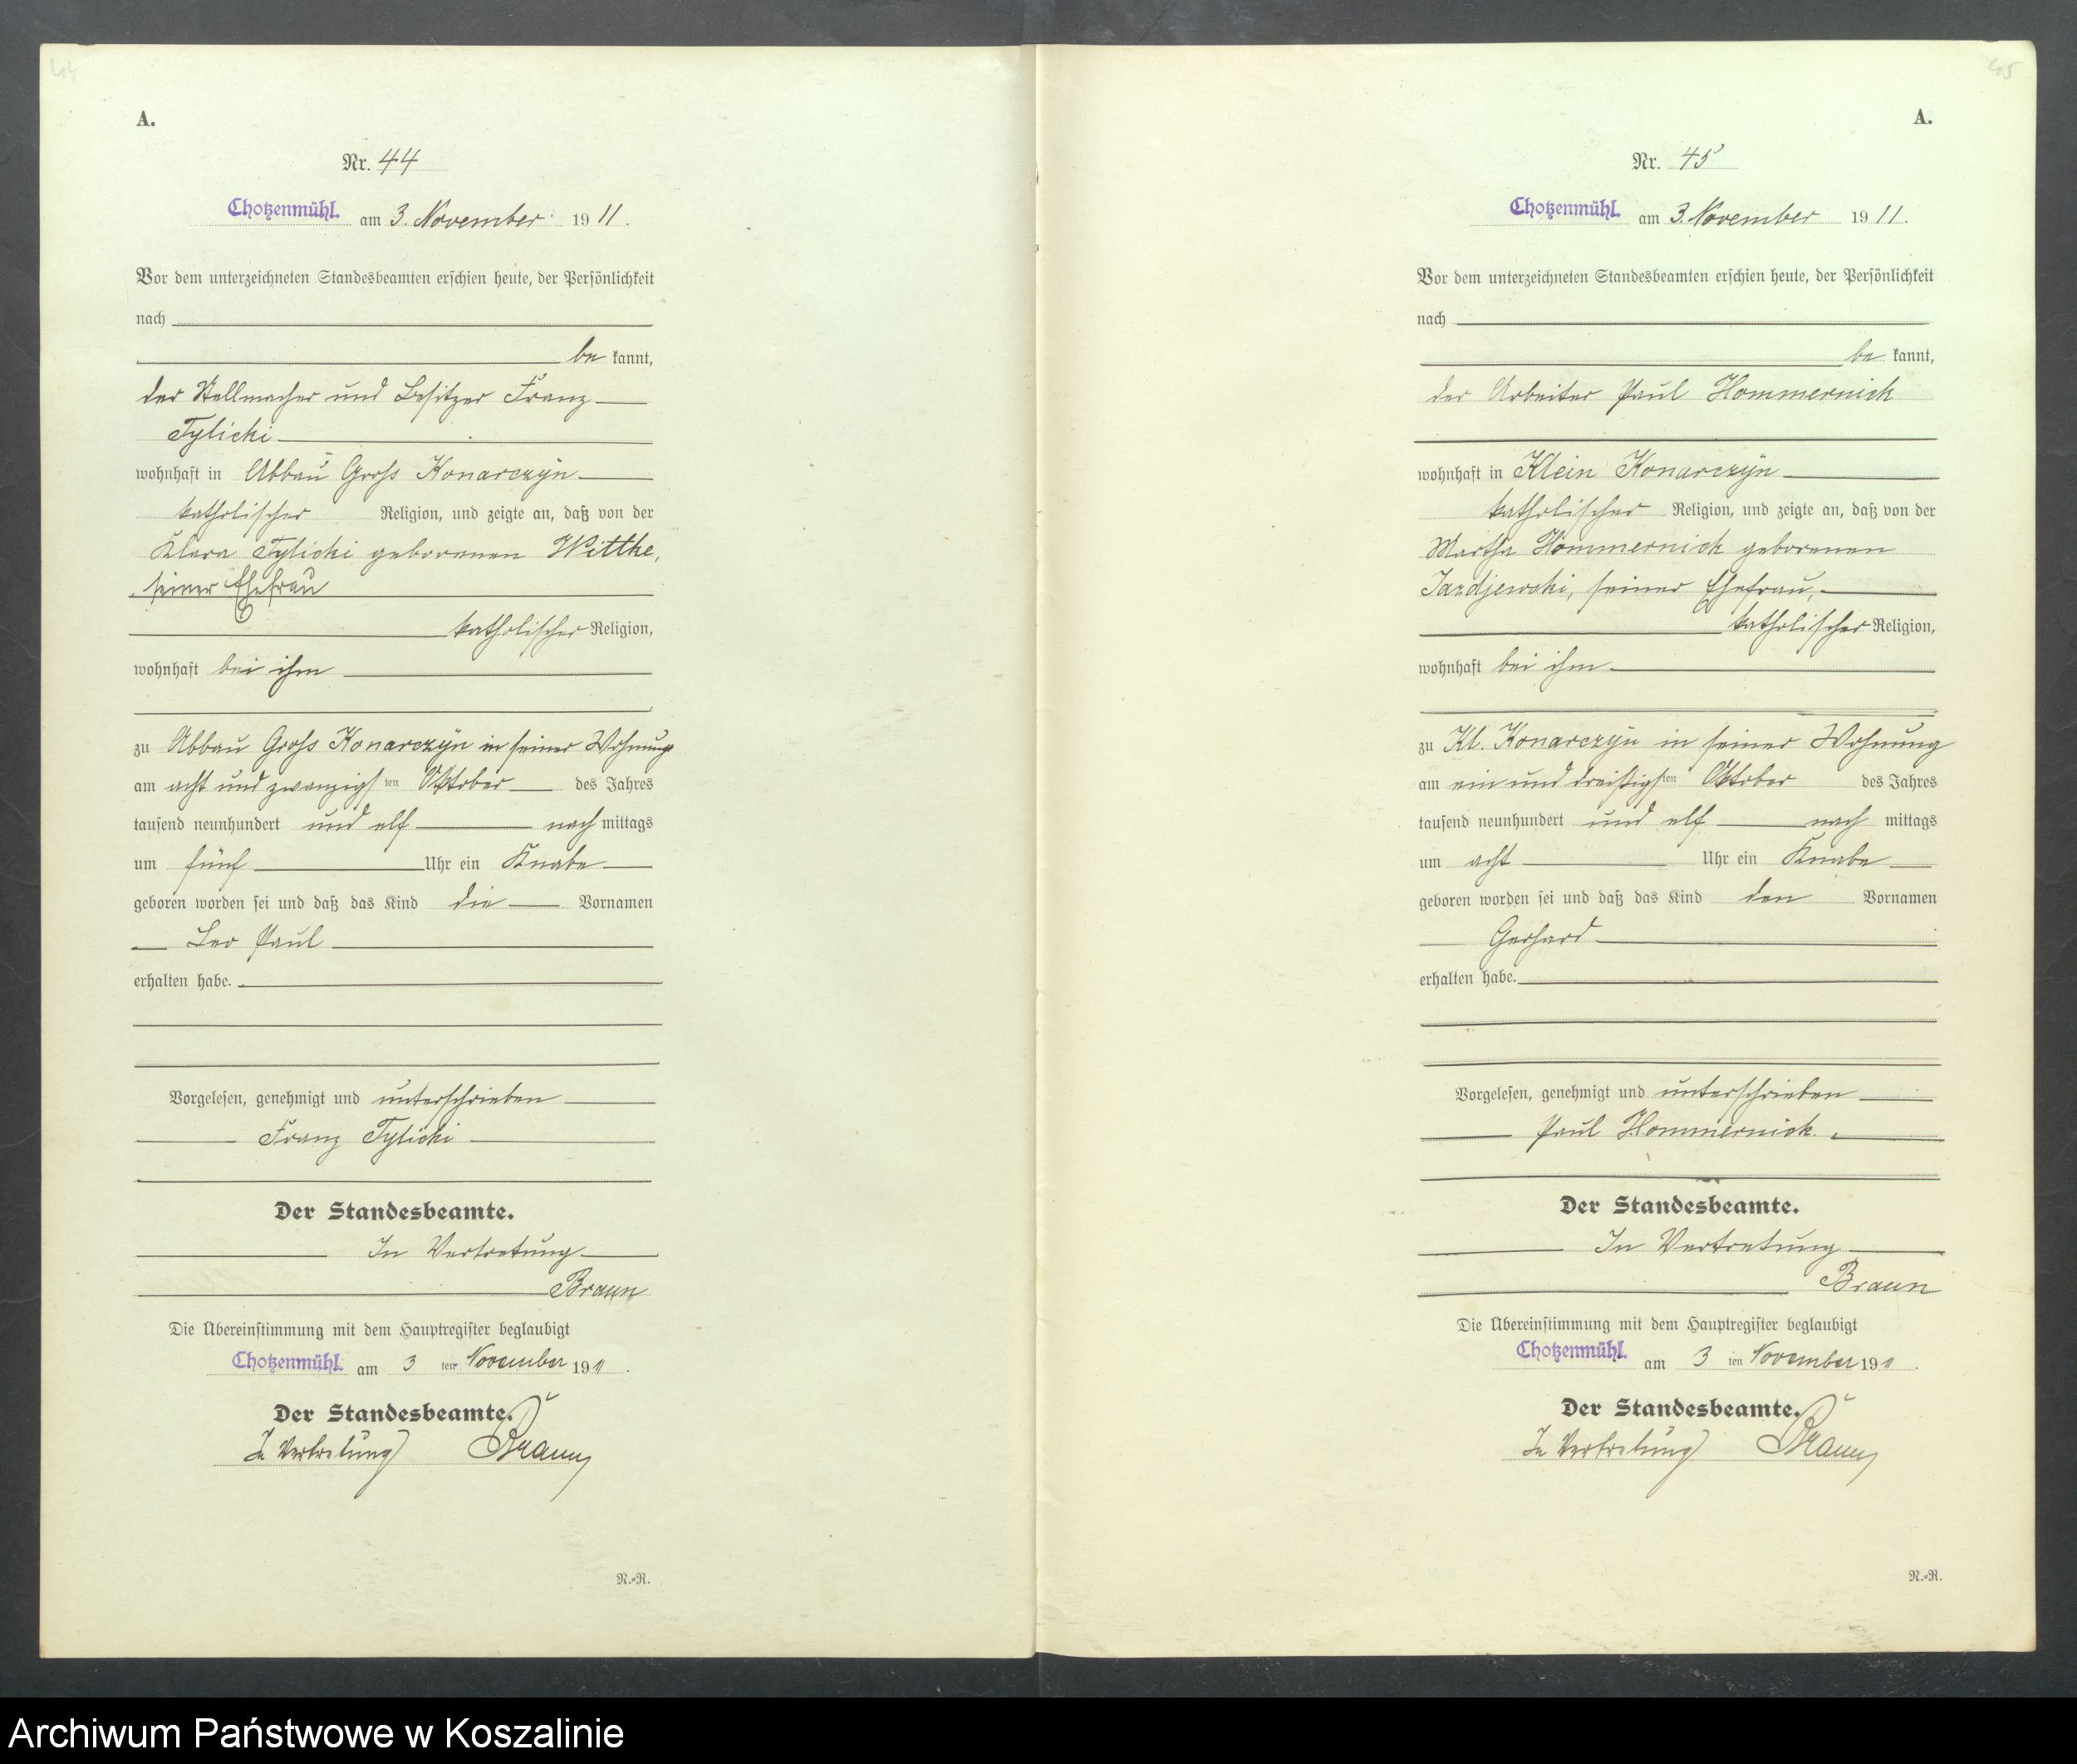 44
A.
Nr. 44
Chotzenmühl. am 3. November 1911.
Vor dem unterzeichneten Standesbeamten erschien heute, der Persönlichkeit
nach
be kannt,
der Stellmacher und Besitzer Franz
Tylicki
wohnhaft in Abbau Groß Konarczyn
katholischer Religion, und zeigte an, daß von der
Klara Tylicki geborenen Wittke,
seiner Ehefrau
katholischer Religion,
wohnhaft bei ihm
zu Abbau Groß Konarczyn in seiner Wohnung
am acht und zwanzigsten Oktober des Jahres
tausend neunhundert und elf nach mittags
um fünf Uhr ein Knabe
geboren worden sei und daß das Kind die Vornamen
Leo Paul
erhalten habe.
Vorgelesen, genehmigt und unterschrieben
Franz Tylicki
Der Standesbeamte.
In Vertretung
Braun
Die Übereinstimmung mit dem Hauptregister beglaubigt
Chotzenmühl. am 3 ten November 1911.
Der Standesbeamte.
In Vertretung Braun
N.-R.
45
A.
Nr. 45
Chotzenmühl. am 3. November 1911.
Vor dem unterzeichneten Standesbeamten erschien heute, der Persönlichkeit
nach
be kannt,
der Arbeiter Paul Hommernick
wohnhaft in Klein Konarczyn
katholischer Religion, und zeigte an, daß von der
Martha Hommernick geborenen
Jazdjewski, seiner Ehefrau,
katholischer Religion,
wohnhaft bei ihm
zu Kl. Konarczyn in seiner Wohnung
am ein und dreißigsten Oktober des Jahres
tausend neunhundert und elf nach mittags
um acht Uhr ein Knabe
geboren worden sei und daß das Kind den Vornamen
Gerhard
erhalten habe.
Vorgelesen, genehmigt und unterschrieben
Paul Hommernick.
Der Standesbeamte.
In Vertretung
Braun
Die Übereinstimmung mit dem Hauptregister beglaubigt
Chotzenmühl. am 3 ten November 1911.
Der Standesbeamte.
In Vertretung Braun
N.-R.
Archiwum Państwowe w Koszalinie